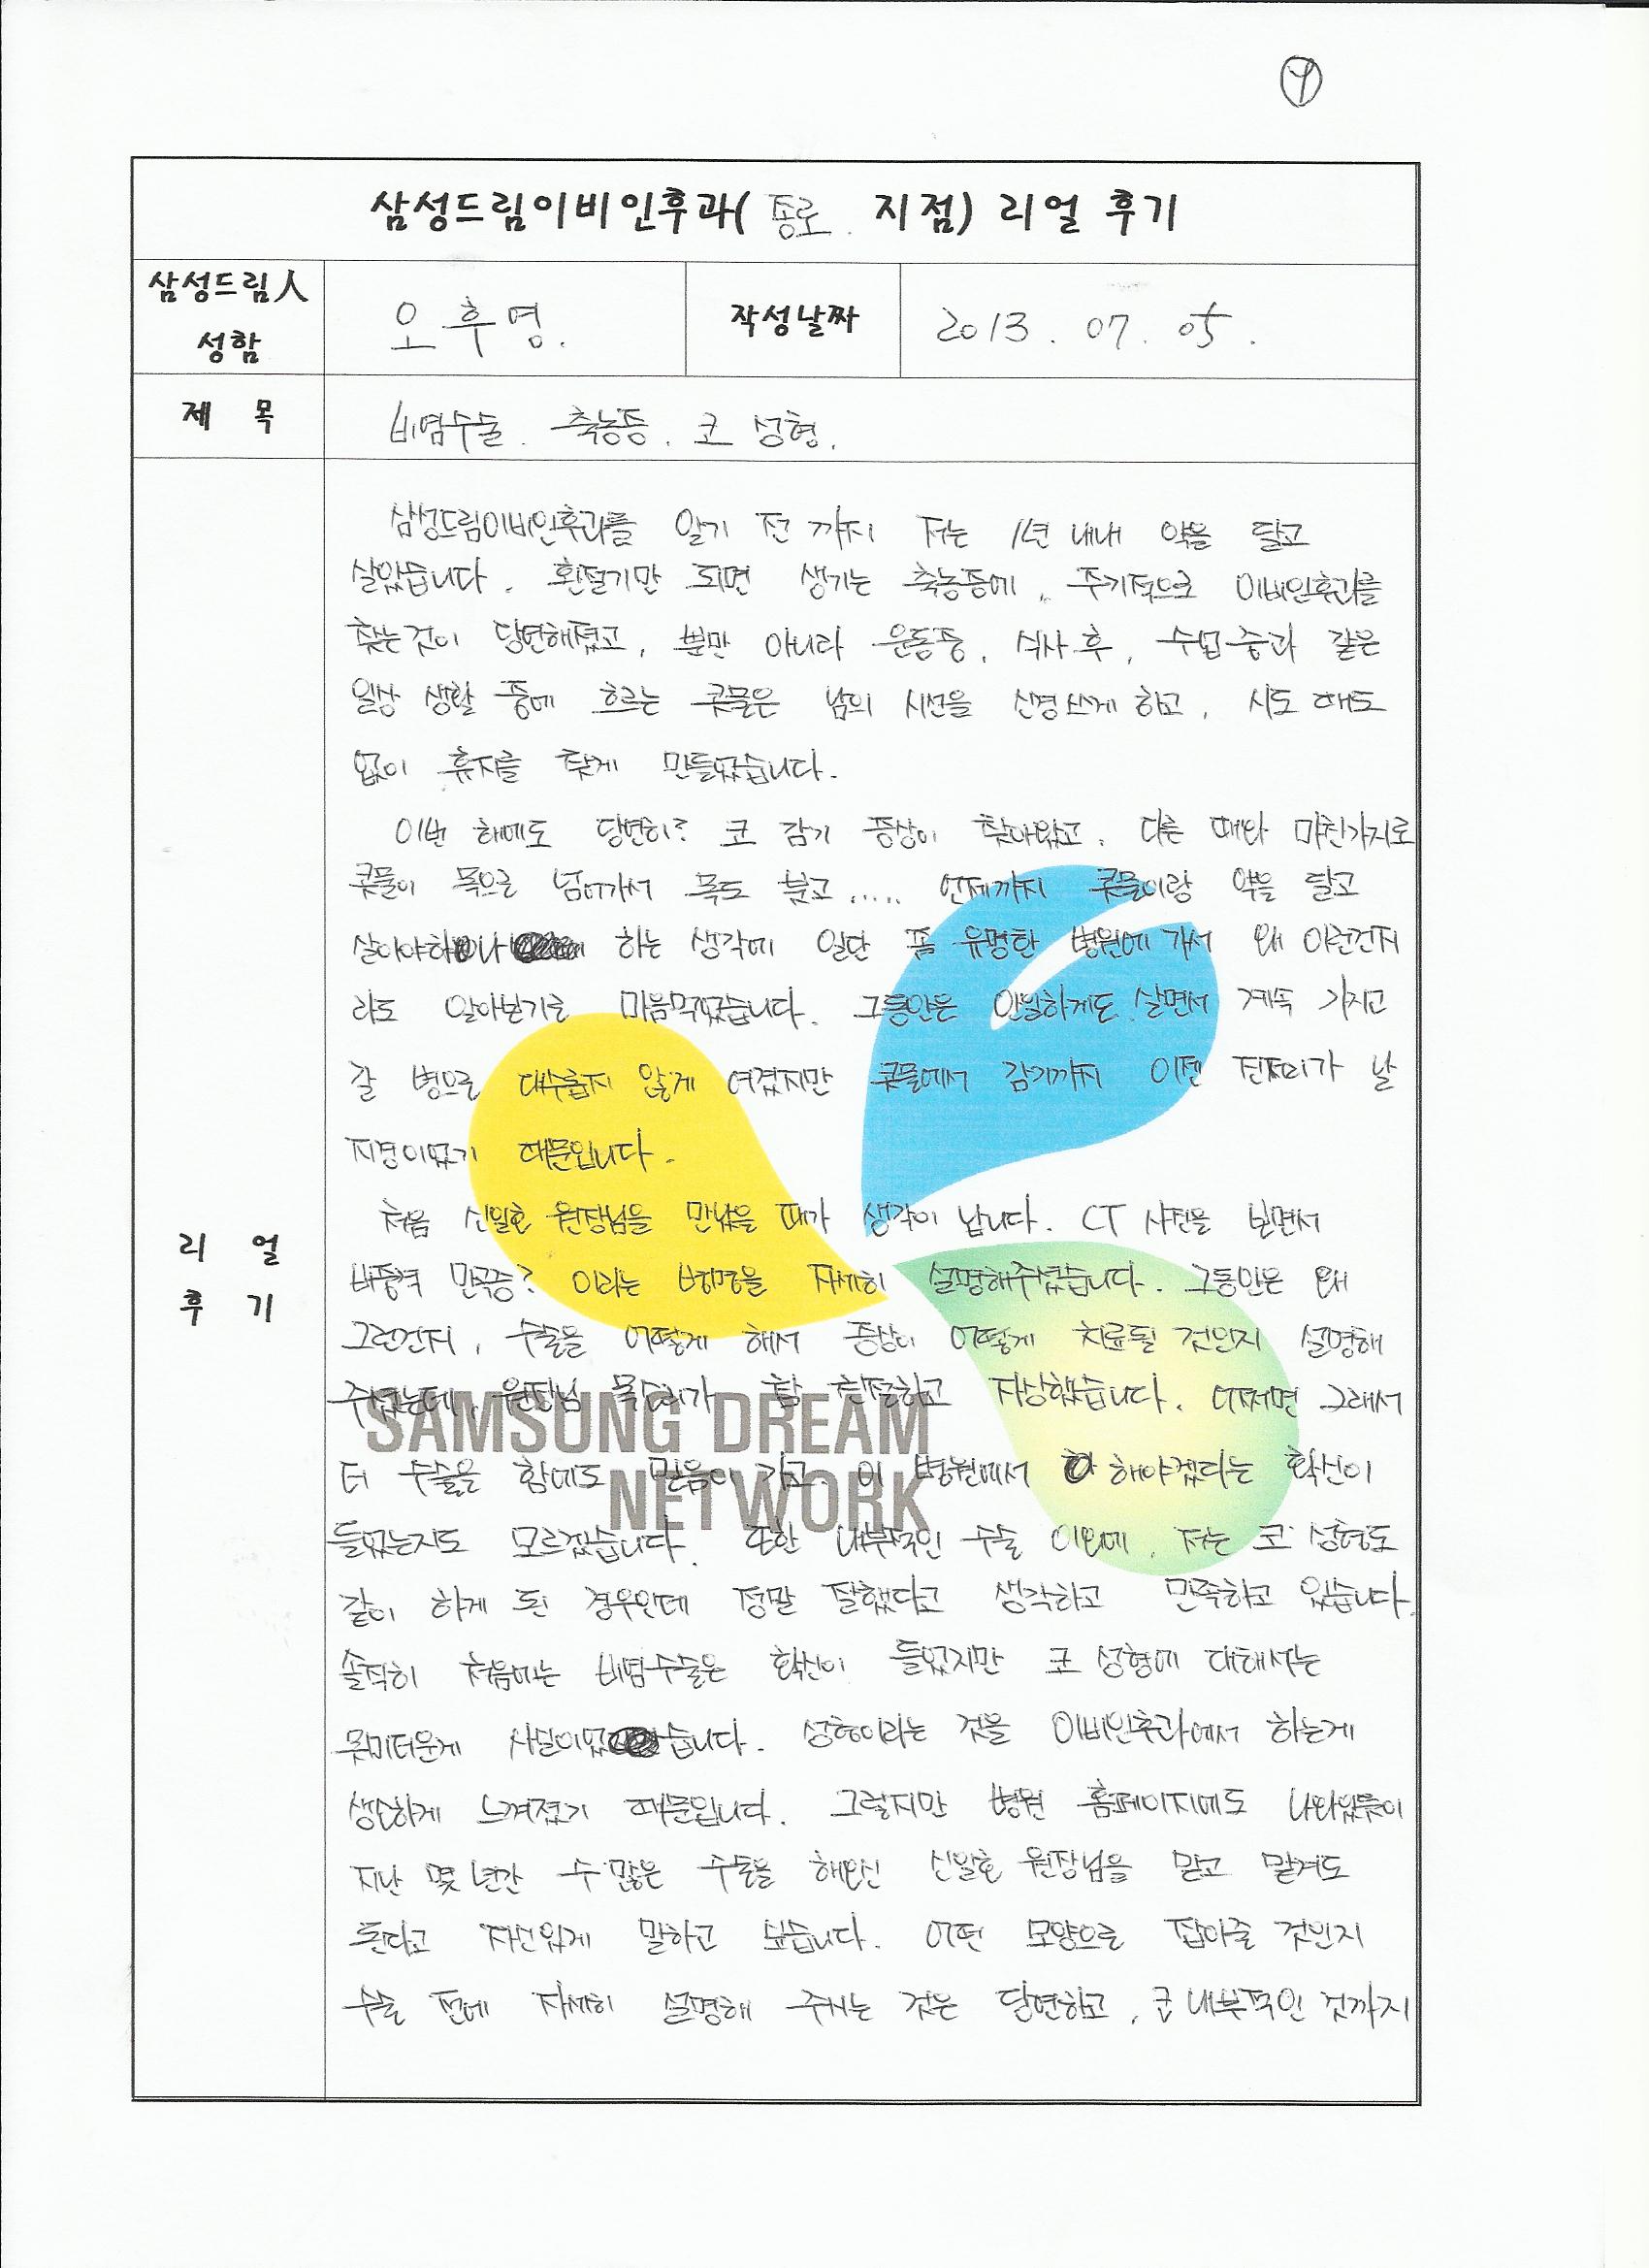 삼성드림이비인후과( 종로 지점) 리얼 후기
삼성드림人 성함
오후영.
작성날짜
2013. 07. 05.
제 목
비염수술. 축농증. 코 성형.
리 얼
후 기
삼성드림이비인후과를 알기 전 까지 저는 1년 내내 약을 달고
살았습니다. 환절기만 되면 생기는 축농증에, 주기적으로 이비인후과를
찾는것이 당연해졌고, 뿐만 아니라 운동중, 식사 후, 수업 중과 같은
일상 생활 중에 흐르는 콧물은 남의 시선을 신경쓰게 하고, 시도 때도
없이 휴지를 찾게 만들었습니다.
이번 해에도 당연히? 코 감기 증상이 찾아왔고, 다른 때와 마찬가지로
콧물이 목으로 넘어가서 목도 붓고..... 언제까지 콧물이랑 약을 달고
살아야하나 하는 생각에 일단 좀 유명한 병원에 가서 왜 이런건지
라도 알아보기로 마음먹었습니다. 그동안은 안일하게도 살면서 계속 가지고
갈 병으로 대수롭지 않게 여겼지만 콧물에서 감기까지 이젠 진저리가 날
지경이었기 때문입니다.
처음 신일호 원장님을 만났을 때가 생각이 납니다. CT 사진을 보면서
비중격 만곡증? 이라는 병명을 자세히 설명해주셨습니다. 그동안은 왜
그런건지, 수술을 어떻게 해서 증상이 어떻게 치료될 것인지 설명해
주셨는데, 원장님 목소리가 참 친절하고 자상했습니다. 어쩌면 그래서
더 수술을 함에도 믿음이 가고 이 병원에서 해야겠다는 확신이
들었는지도 모르겠습니다. 또한 내부적인 수술 이외에, 저는 코 성형도
같이 하게 된 경우인데 정말 잘했다고 생각하고 만족하고 있습니다.
솔직히 처음에는 비염수술은 확신이 들었지만 코 성형에 대해서는
못미더운게 사실이었습니다. 성형이라는 것을 이비인후과에서 하는게
생소하게 느껴졌기 때문입니다. 그렇지만 병원 홈페이지에도 나와있듯이
지난 몇 년간 수 많은 수술을 해오신 신일호 원장님을 믿고 맡겨도
된다고 자신있게 말하고 싶습니다. 어떤 모양으로 잡아줄 것인지
수술 전에 자세히 설명해 주시는 것은 당연하고, 코 내부적인 것까지
SAMSUNG DREAM
NETWORK